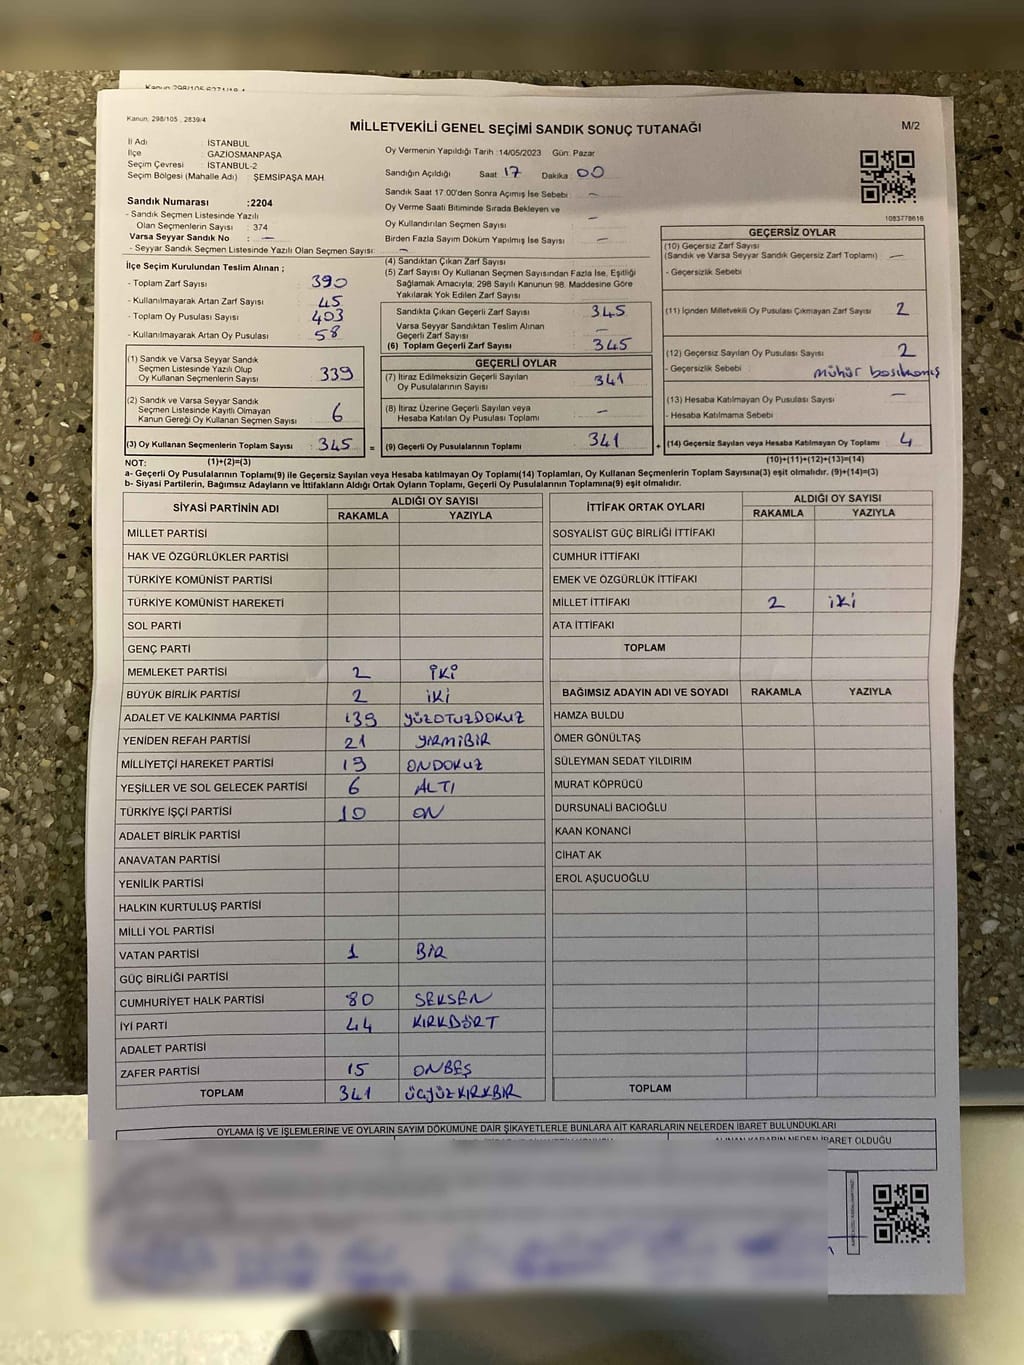 Kanun, 298/105 , 2839/4
MİLLETVEKİLİ GENEL SEÇİMİ SANDIK SONUÇ TUTANAĞI
M/2
İl Adı : İSTANBUL
İlçe : GAZİOSMANPAŞA
Seçim Çevresi : İSTANBUL-2
Seçim Bölgesi (Mahalle Adı) : ŞEMSİPAŞA MAH
Sandık Numarası :2204
- Sandık Seçmen Listesinde Yazılı
Olan Seçmenlerin Sayısı : 374
Varsa Seyyar Sandık No : —
- Seyyar Sandık Seçmen Listesinde Yazılı Olan Seçmen Sayısı: —
Oy Vermenin Yapıldığı Tarih :14/05/2023 Gün: Pazar
Sandığın Açıldığı Saat 17 Dakika : 00
Sandık Saat 17:00'den Sonra Açımış İse Sebebi : —
Oy Verme Saati Bitiminde Sırada Bekleyen ve
Oy Kullandırılan Seçmen Sayısı : —
Birden Fazla Sayım Döküm Yapılmış İse Sayısı : —
1083778616
İlçe Seçim Kurulundan Teslim Alınan ;
- Toplam Zarf Sayısı : 390
- Kullanılmayarak Artan Zarf Sayısı : 45
- Toplam Oy Pusulası Sayısı : 403
- Kullanılmayarak Artan Oy Pusulası : 58
(1) Sandık ve Varsa Seyyar Sandık
Seçmen Listesinde Yazılı Olup
Oy Kullanan Seçmenlerin Sayısı : 339
(2) Sandık ve Varsa Seyyar Sandık
Seçmen Listesinde Kayıtlı Olmayan
Kanun Gereği Oy Kullanan Seçmen Sayısı : 6
(3) Oy Kullanan Seçmenlerin Toplam Sayısı : 345
(4) Sandıktan Çıkan Zarf Sayısı :
(5) Zarf Sayısı Oy Kullanan Seçmen Sayısından Fazla İse, Eşitliği
Sağlamak Amacıyla; 298 Sayılı Kanunun 98. Maddesine Göre
Yakılarak Yok Edilen Zarf Sayısı :
Sandıkta Çıkan Geçerli Zarf Sayısı : 345
Varsa Seyyar Sandıktan Teslim Alınan
Geçerli Zarf Sayısı : —
(6) Toplam Geçerli Zarf Sayısı : 345
GEÇERLİ OYLAR
(7) İtiraz Edilmeksizin Geçerli Sayılan
Oy Pusulalarının Sayısı : 341
(8) İtiraz Üzerine Geçerli Sayılan veya
Hesaba Katılan Oy Pusulası Toplamı : —
= (9) Geçerli Oy Pusulalarının Toplamı : 341
GEÇERSİZ OYLAR
(10) Geçersiz Zarf Sayısı
(Sandık ve Varsa Seyyar Sandık Geçersiz Zarf Toplamı) : —
- Geçersizlik Sebebi :
(11) İçinden Milletvekili Oy Pusulası Çıkmayan Zarf Sayısı : 2
(12) Geçersiz Sayılan Oy Pusulası Sayısı : 2
- Geçersizlik Sebebi : mühür basılmamış
(13) Hesaba Katılmayan Oy Pusulası Sayısı : —
- Hesaba Katılmama Sebebi :
+ (14) Geçersiz Sayılan veya Hesaba Katılmayan Oy Toplamı : 4
NOT: (1)+(2)=(3)
(10)+(11)+(12)+(13)=(14)
a- Geçerli Oy Pusulalarının Toplamı(9) ile Geçersiz Sayılan veya Hesaba katılmayan Oy Toplamı(14) Toplamları, Oy Kullanan Seçmenlerin Toplam Sayısına(3) eşit olmalıdır. (9)+(14)=(3)
b- Siyasi Partilerin, Bağımsız Adayların ve İttifakların Aldığı Ortak Oyların Toplamı, Geçerli Oy Pusulalarının Toplamına(9) eşit olmalıdır.
SİYASİ PARTİNİN ADI ALDIĞI OY SAYISI
RAKAMLA YAZIYLA
MİLLET PARTİSİ
HAK VE ÖZGÜRLÜKLER PARTİSİ
TÜRKİYE KOMÜNİST PARTİSİ
TÜRKİYE KOMÜNİST HAREKETİ
SOL PARTİ
GENÇ PARTİ
MEMLEKET PARTİSİ 2 İKİ
BÜYÜK BİRLİK PARTİSİ 2 İKİ
ADALET VE KALKINMA PARTİSİ 139 YÜZOTUZDOKUZ
YENİDEN REFAH PARTİSİ 21 YİRMİBİR
MİLLİYETÇİ HAREKET PARTİSİ 19 ONDOKUZ
YEŞİLLER VE SOL GELECEK PARTİSİ 6 ALTI
TÜRKİYE İŞÇİ PARTİSİ 10 ON
ADALET BİRLİK PARTİSİ
ANAVATAN PARTİSİ
YENİLİK PARTİSİ
HALKIN KURTULUŞ PARTİSİ
MİLLİ YOL PARTİSİ
VATAN PARTİSİ 1 BİR
GÜÇ BİRLİĞİ PARTİSİ
CUMHURİYET HALK PARTİSİ 80 SEKSEN
İYİ PARTİ 44 KIRKDÖRT
ADALET PARTİSİ
ZAFER PARTİSİ 15 ONBEŞ
TOPLAM 341 ÜÇYÜZKIRKBİR
İTTİFAK ORTAK OYLARI ALDIĞI OY SAYISI
RAKAMLA YAZIYLA
SOSYALİST GÜÇ BİRLİĞİ İTTİFAKI
CUMHUR İTTİFAKI
EMEK VE ÖZGÜRLÜK İTTİFAKI
MİLLET İTTİFAKI 2 İKİ
ATA İTTİFAKI
TOPLAM
BAĞIMSIZ ADAYIN ADI VE SOYADI RAKAMLA YAZIYLA
HAMZA BULDU
ÖMER GÖNÜLTAŞ
SÜLEYMAN SEDAT YILDIRIM
MURAT KÖPRÜCÜ
DURSUNALİ BACIOĞLU
KAAN KONANCİ
CİHAT AK
EROL AŞUCUOĞLU
TOPLAM
OYLAMA İŞ VE İŞLEMLERİNE VE OYLARIN SAYIM DÖKÜMÜNE DAİR ŞİKAYETLERLE BUNLARA AİT KARARLARIN NELERDEN İBARET BULUNDUKLARI
ALINAN KARARIN NEDEN İBARET OLDUĞU